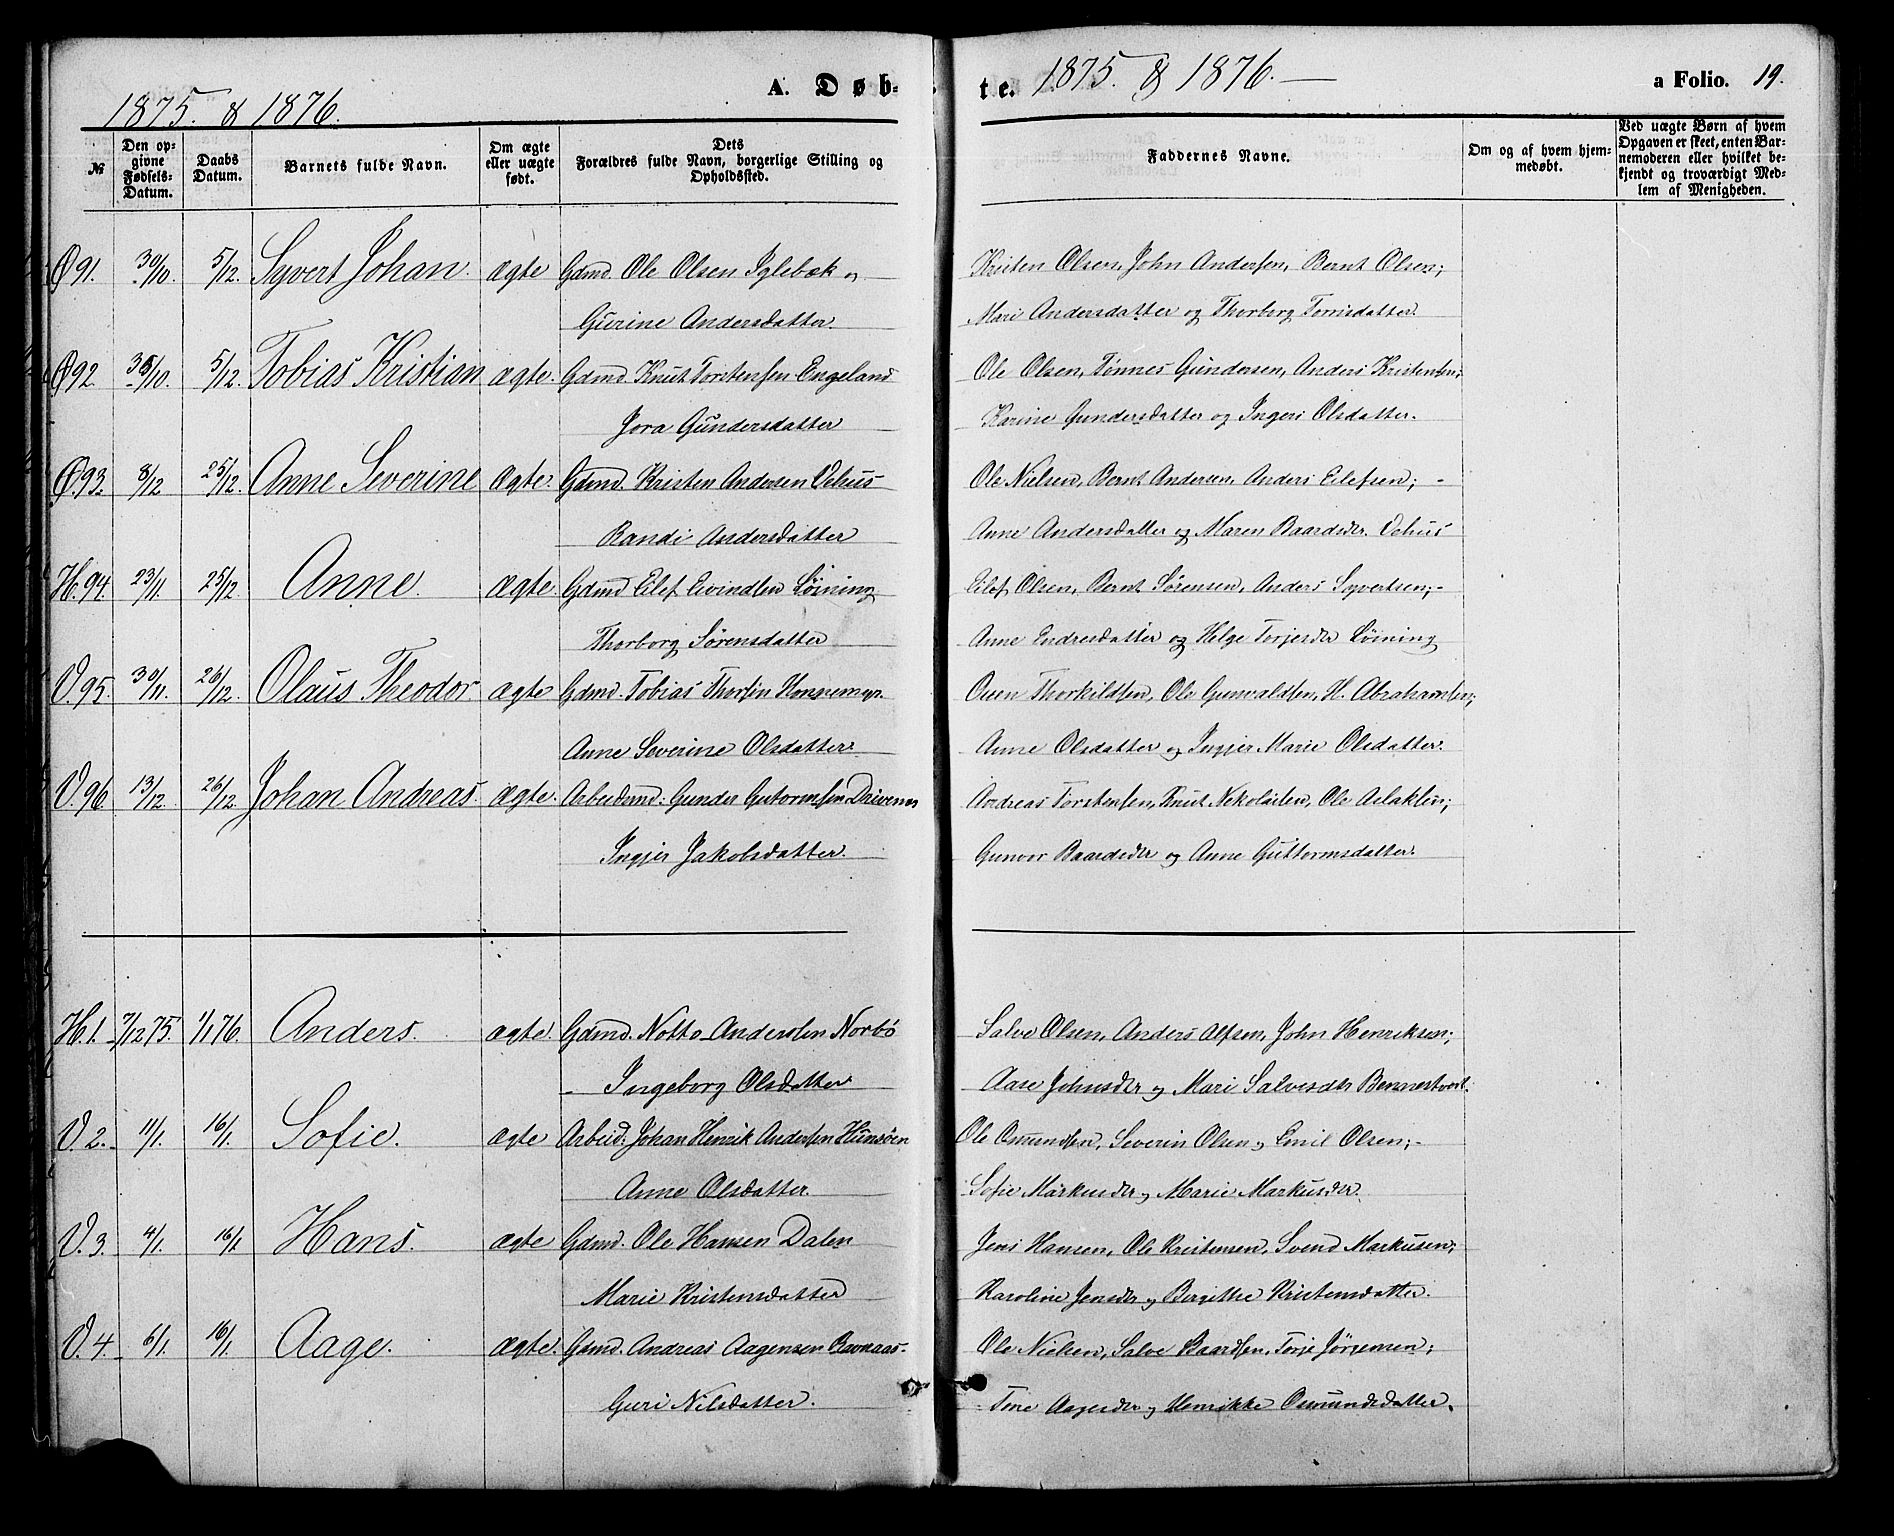 A. Døb-
1875. & 1876.
№
Den op-
givne
Fødsels-
Datum.
Daabs
Datum.
Barnets fulde Navn.
Om ægte
eller uægte
født.
Dets
Forældres fulde Navn, borgerlige Stilling og
Opholdssted.
Ø91. 30/10. 5/12. Syvert Johan. ægte Gdmd. Ole Olsen Iglebæk og
Gurine Andersdatter.
Ø92 /10. 5/12. Tobias Kristian ægte. Gdmd. Knut Torstensen Engeland
Jora Gundersdatter
Ø.93. 8/12 25/12. Anne Severine Ægte. Gdmd. Kristen Andersen Vehus
Randi Andersdatter
H.94. 23/11. 25/12. Anne. Ægte. Gdmd Eilef Eivindsen Løining
Thorborg Sørensdatter
V.95. 30/11. 26/12. Olaus Theodor. ægte Gdmd. Tobias Thorsen Honnemyr.
Anne Severine Olsdatter.
V.96. 13/12. 26/12. Johan Andreas. ægte. Arbeidsmd: Gunder Gutormsen Drivenes
Ingjer Jakobsdatter.
H.1. 7/12 75. 1/1 76. Anders. ægte. Gdmd. Notto Andersen Norbø
Ingeborg Olsdatter
V.2. 11/1. 16/1. Sofie. ægte Arbeid: Johan Henrik Andersen Hunsøen
Anne Olsdatter.
V.3. 4/1. 16/1 Hans. ægte Gdmd. Ole Hansen Dalen
Marie Kristensdatter
V.4. 6/1. 16/1. Aage. ægte. Gdmd. Andreas Aagensen Ravnaas
Guri Nilsdatter.
te. 1875. & 1876.
a Folio. 19.
Faddernes Navne.
Om og af hvem hjem-
medøbt.
Ved uægte Børn af hvem
Opgaven er skeet, enten Bar-
nemoderen eller hvilket be-
kjendt og troværdigt Med-
lem af Menigheden.
Kristen Olsen, John Andersen, Bernt Olsen;
Mari Andersdatter og Thorborg Terrisdatter.
Ole Olsen, Tønnes Gundersen, Anders Kristensen;
Karine Gundersdatter og Ingeri Olsdatter.
Ole Nielsen, Bernt Andersen, Anders Eilefsen;
Anne Andersdatter og Maren Baardsdtr. Vehus
Eilef Olsen, Bernt Sørensen, Anders Syvertsen;
Anne Endresdatter og Helge Torjesdtr Løining
Ouen Thorkildsen, Ole Gunvaldsen, H. Abrahamsen;
Anne Olsdatter og Ingjer Marie Olsdatter.
Andreas Torstensen, Knut Nikolaisen, Ole Aslaksen;
Gunvor Baardsdtr og Anne Guttormsdatter.
Salve Olsen, Anders Alfsen, John Henriksen;
Aase Johnsdtr og Mari Salvesdtr
Ole Osmundsen, Severin Olsen og Emil Olsen;
Sofie Markusdtr og Marie Markusdtr.
Jens Hansen, Ole Kristensen, Svend Markusen;
Karoline Jensdtr og Bergitte Kristensdatter.
Ole Nielsen, Salve Baardsen, Torje Jørgensen;
Tone Aagesdtr og Henrikke Osmundsdatter.